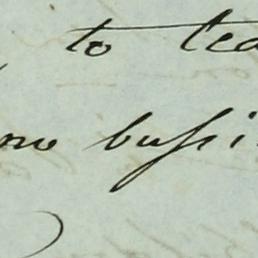 to tea
no buſsi